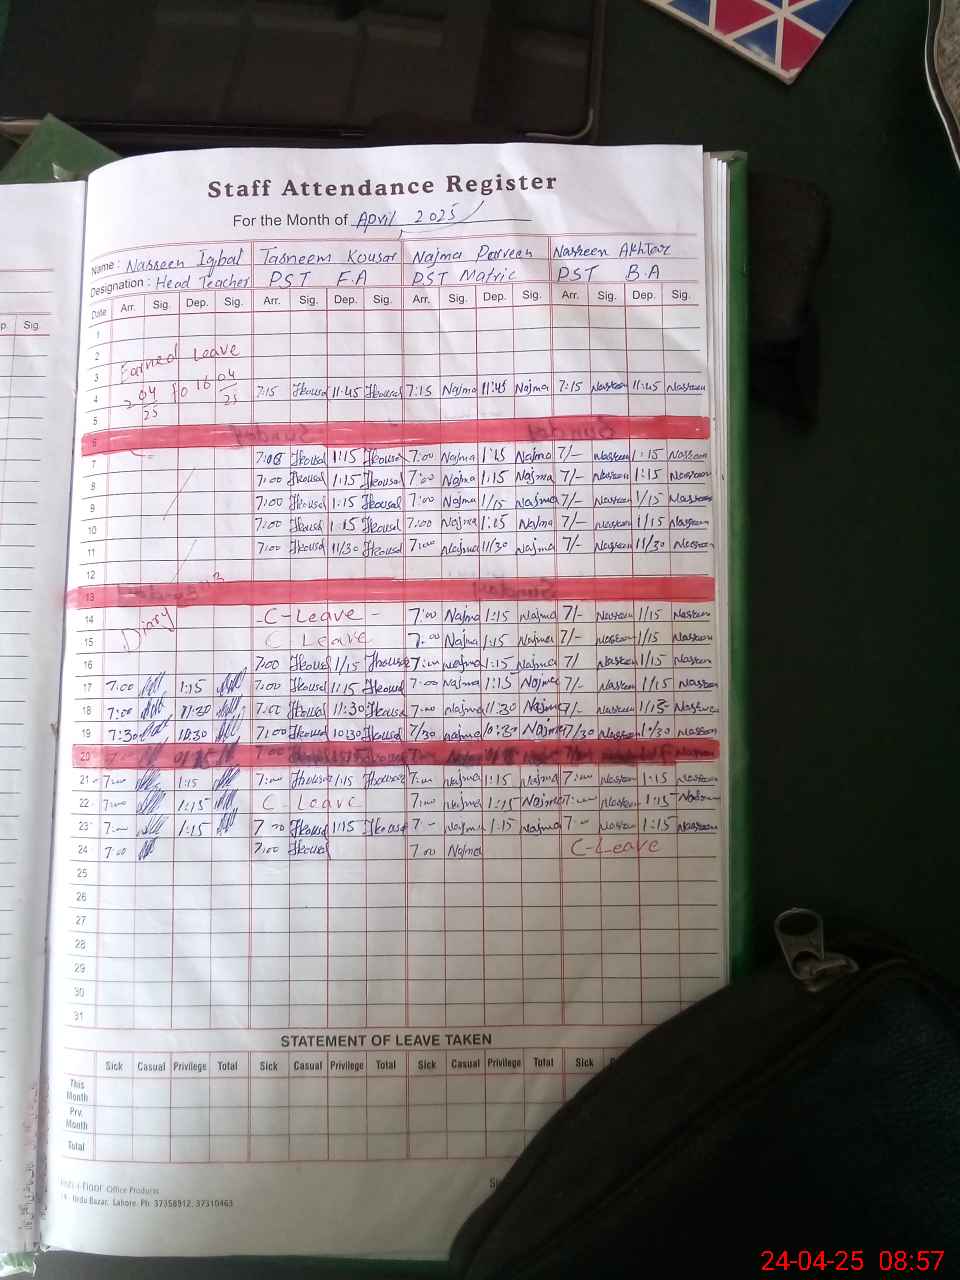 Staff Attendance Register
For the Month of April 2025
Name: Nasreen Iqbal Tasneem Kousar Najma Parveen Nasreen Akhtar
Designation: Head Teacher PST F.A PST Matric PST B.A
Date Arr. Sig. Dep. Sig. Arr. Sig. Dep. Sig. Arr. Sig. Dep. Sig. Arr. Sig. Dep. Sig.
1
2 Earned Leave
3 04/25 to 16 04/25
4 7:15 Tkousar 11:45 Tkousar 7:15 Najma 11:45 Najma 7:15 Nasreen 11:45 Nasreen
5
6 Sunday Sunday
7 Tkousar 1:15 Tkousar 7:00 Najma 1:15 Najma 7/- Nasreen 1:15 Nasreen
8 7:00 Tkousar 1:15 Tkousar 7:00 Najma 1:15 Najma 7/- Nasreen 1:15 Nasreen
9 7:00 Tkousar 1:15 Tkousar 7:00 Najma 1/15 Najma 7/- Nasreen 1/15 Nasreen
10 7:00 Tkousar 1:15 Tkousar 7:00 Najma 1:15 Najma 7/- Nasreen 1/15 Nasreen
11 7:00 Tkousar 11/30 Tkousar 7:00 Najma 11/30 Najma 7/- Nasreen 11/30 Nasreen
12
13 Sunday Sunday
14 Diary C-Leave 7:00 Najma 1:15 Najma 7/- Nasreen 1/15 Nasreen
15 C Leave 7:00 Najma 1:15 Najma 7/- Nasreen 1/15 Nasreen
16 7:00 Tkousar 1/15 Tkousar 7:00 Najma 1:15 Najma 7/ Nasreen 1/15 Nasreen
17 7:00 1:15 7:00 Tkousar 1:15 Tkousar 7:00 Najma 1:15 Najma 7/- Nasreen 1/15 Nasreen
18 7:00 11:30 7:00 Tkousar 11:30 Tkousar 7:00 Najma 11:30 Najma 7/- Nasreen Nasreen
19 7:30 10:30 Tkousar 10:30 Tkousar 7/30 Najma 10:30 Najma Nasreen 10/30 Nasreen
20 7:00
21 7:00 1:15 7:00 Tkousar 1:15 Tkousar 7:00 Najma 1:15 Najma 7:00 Nasreen 1:15 Nasreen
22 7:00 1:15 C-Leave 7:00 Najma 1:15 Najma 7:00 Nasreen 1:15 Nasreen
23 7:00 1:15 7:00 Tkousar 1:15 Tkousar 7:00 Najma 1:15 Najma 7:00 Nasreen 1:15 Nasreen
24 7:00 7:00 Tkousar 7:00 Najma C-Leave
25
26
27
28
29
30
31
STATEMENT OF LEAVE TAKEN
Sick Casual Privilege Total Sick Casual Privilege Total Sick Casual Privilege Total Sick
This Month
Prv. Month
Total
Office Products
Urdu Bazar, Lahore. Ph: 37358912, 37310463
24-04-25 08:57